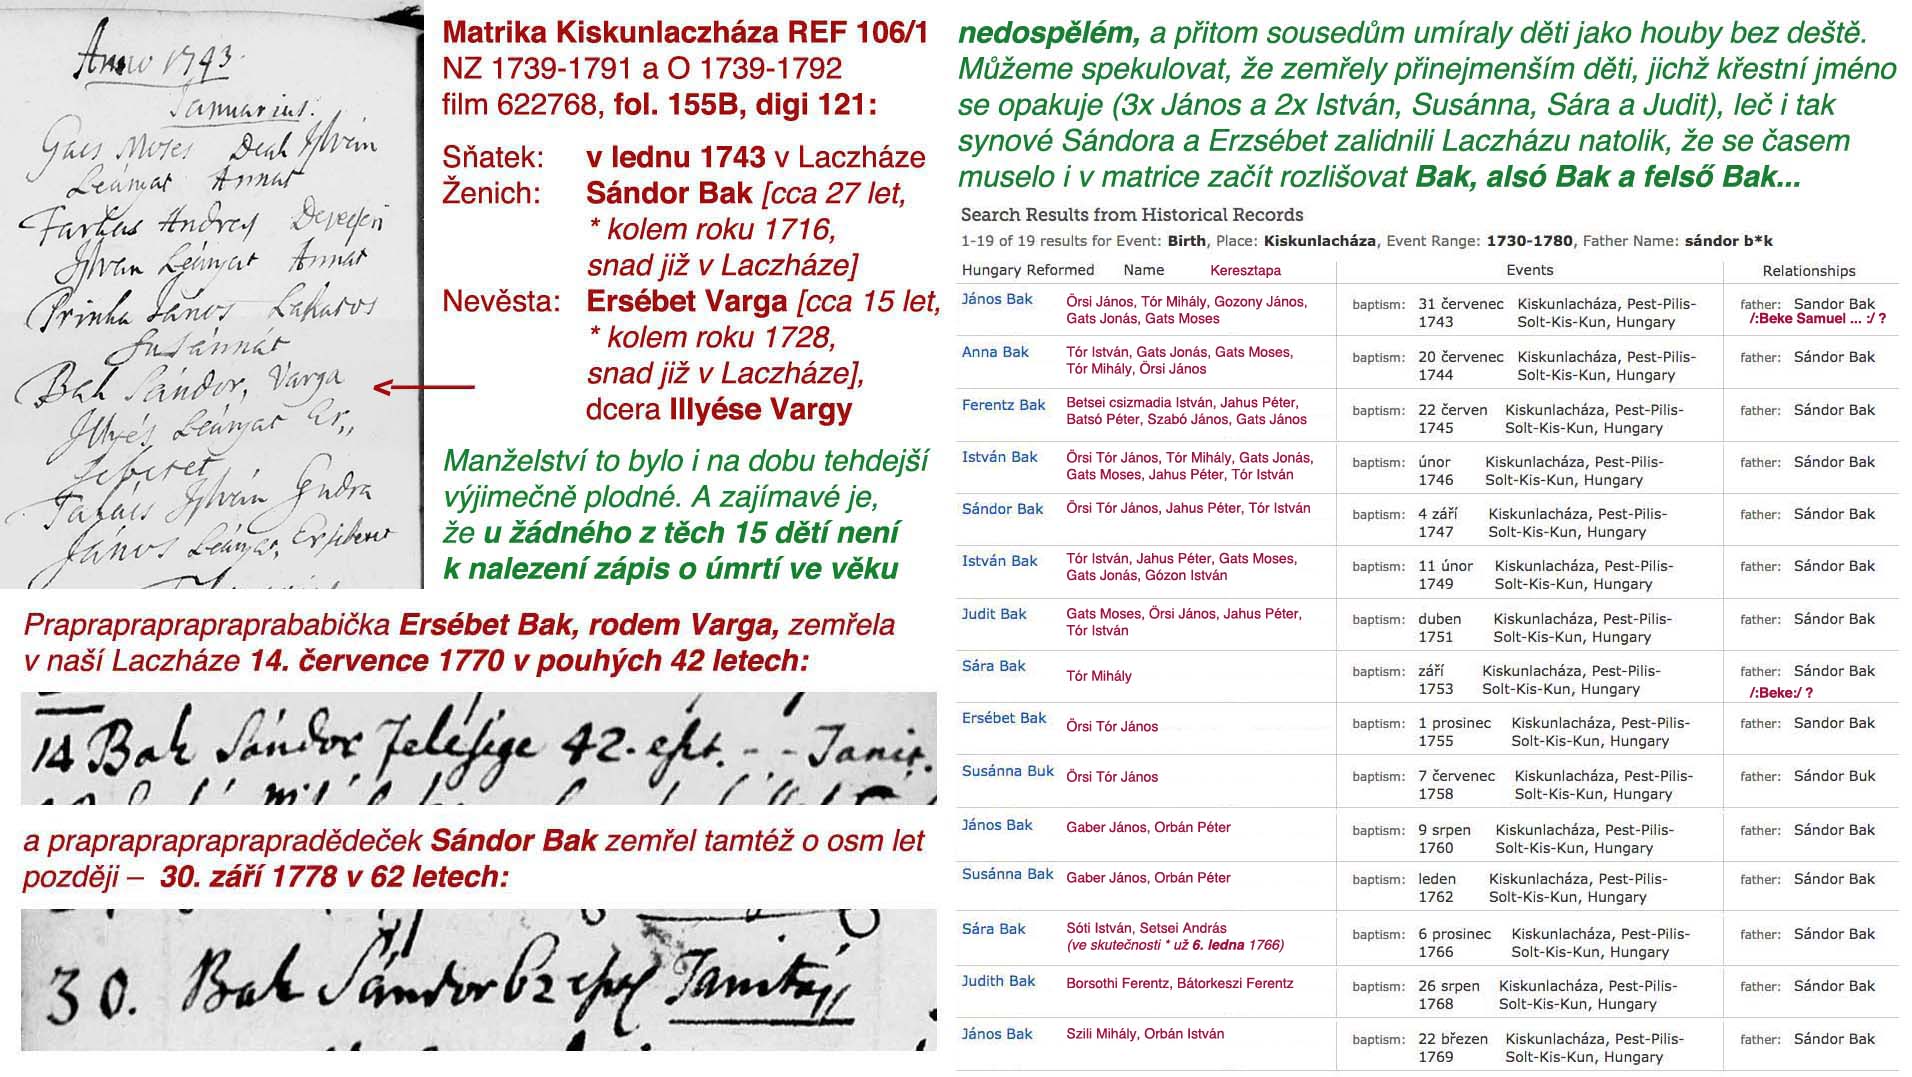 Anno 1743.
Januarius.
Gaes Moses Deak Istvan
Leányat Annat
Farkas Andras Devecseri
Istvan Leányat Annat
Prinka János Lakatos
Susánnát
Bak Sándor, Varga
Illyés Leányat Er,,
sebetet
Takács Istvan Gudra
János Leányat, Ersebetet
Matrika Kiskunlaczháza REF 106/1
NZ 1739-1791 a O 1739-1792
film 622768, fol. 155B, digi 121:
Sňatek: v lednu 1743 v Laczháze
Ženich: Sándor Bak [cca 27 let,
* kolem roku 1716,
snad již v Laczháze]
Nevěsta: Ersébet Varga [cca 15 let,
* kolem roku 1728,
snad již v Laczháze],
dcera Illyése Vargy
Manželství to bylo i na dobu tehdejší
výjimečně plodné. A zajímavé je,
že u žádného z těch 15 dětí není
k nalezení zápis o úmrtí ve věku
nedospělém, a přitom sousedům umíraly děti jako houby bez deště.
Můžeme spekulovat, že zemřely přinejmenším děti, jichž křestní jméno
se opakuje (3x János a 2x István, Susánna, Sára a Judit), leč i tak
synové Sándora a Erzsébet zalidnili Laczházu natolik, že se časem
muselo i v matrice začít rozlišovat Bak, alsó Bak a felső Bak...
Prapraprapraprapra­babička Ersébet Bak, rodem Varga, zemřela
v naší Laczháze 14. července 1770 v pouhých 42 letech:
14 Bak Sándor Felesége 42. eszt. - - Tanit.
a praprapraprapra­pradědeček Sándor Bak zemřel tamtéž o osm let
později – 30. září 1778 v 62 letech:
30. Bak Sándor 62 eszt Tanitás
Search Results from Historical Records
1-19 of 19 results for Event: Birth, Place: Kiskunlacháza, Event Range: 1730-1780, Father Name: sándor b*k
Hungary Reformed Name Keresztapa Events Relationships
János Bak Örsi János, Tór Mihály, Gozony János, baptism: 31 červenec Kiskunlacháza, Pest-Pilis- father: Sandor Bak
Gats Jonás, Gats Moses 1743 Solt-Kis-Kun, Hungary /:Beke Samuel ... :/ ?
Anna Bak Tór István, Gats Jonás, Gats Moses, baptism: 20 červenec Kiskunlacháza, Pest-Pilis- father: Sándor Bak
Tór Mihály, Örsi János 1744 Solt-Kis-Kun, Hungary
Ferentz Bak Betsei csizmadia István, Jahus Péter, baptism: 22 červen Kiskunlacháza, Pest-Pilis- father: Sándor Bak
Batsó Péter, Szabó János, Gats János 1745 Solt-Kis-Kun, Hungary
István Bak Örsi Tór János, Tór Mihály, Gats Jonás, baptism: únor Kiskunlacháza, Pest-Pilis- father: Sándor Bak
Gats Moses, Jahus Péter, Tór István 1746 Solt-Kis-Kun, Hungary
Sándor Bak Örsi Tór János, Jahus Péter, Tór István baptism: 4 září Kiskunlacháza, Pest-Pilis- father: Sándor Bak
1747 Solt-Kis-Kun, Hungary
István Bak Tór István, Jahus Péter, Gats Moses, baptism: 11 únor Kiskunlacháza, Pest-Pilis- father: Sándor Bak
Gats Jonás, Gózon István 1749 Solt-Kis-Kun, Hungary
Judit Bak Gats Moses, Örsi János, Jahus Péter, baptism: duben Kiskunlacháza, Pest-Pilis- father: Sándor Bak
Tór István 1751 Solt-Kis-Kun, Hungary
Sára Bak Tór Mihály baptism: září Kiskunlacháza, Pest-Pilis- father: Sándor Bak
1753 Solt-Kis-Kun, Hungary /:Beke:/ ?
Ersébet Bak Örsi Tór János baptism: 1 prosinec Kiskunlacháza, Pest-Pilis- father: Sándor Bak
1755 Solt-Kis-Kun, Hungary
Susánna Buk Örsi Tór János baptism: 7 červenec Kiskunlacháza, Pest-Pilis- father: Sándor Buk
1758 Solt-Kis-Kun, Hungary
János Bak Gaber János, Orbán Péter baptism: 9 srpen Kiskunlacháza, Pest-Pilis- father: Sándor Bak
1760 Solt-Kis-Kun, Hungary
Susánna Bak Gaber János, Orbán Péter baptism: leden Kiskunlacháza, Pest-Pilis- father: Sándor Bak
1762 Solt-Kis-Kun, Hungary
Sára Bak Sóti István, Setsei András baptism: 6 prosinec Kiskunlacháza, Pest-Pilis- father: Sándor Bak
(ve skutečnosti * už 6. ledna 1766) 1766 Solt-Kis-Kun, Hungary
Judith Bak Borsothi Ferentz, Bátorkeszi Ferentz baptism: 26 srpen Kiskunlacháza, Pest-Pilis- father: Sándor Bak
1768 Solt-Kis-Kun, Hungary
János Bak Szili Mihály, Orbán István baptism: 22 březen Kiskunlacháza, Pest-Pilis- father: Sándor Bak
1769 Solt-Kis-Kun, Hungary